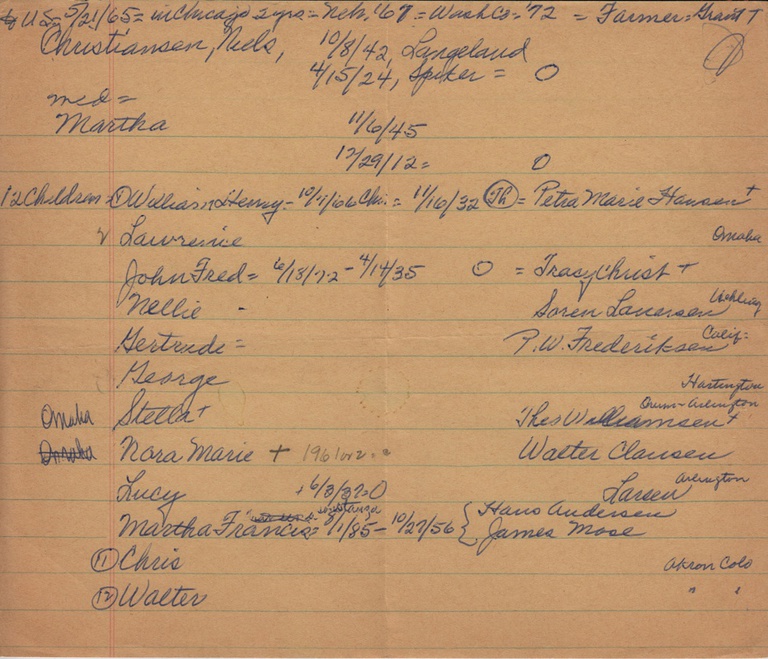 to US= 5/21/65= in Chicago 2 yrs= Neb. '67 = Wash Co= '72 = Farmer= Grant T
Christiansen, Niels, 10/8/42, Langeland
4/15/24, Spiker = O
med=
Martha 11/6/45
12/29/12= O
12 Children = ① William Henry- 10/1/66 Chi. = 11/16/32 (Th) = Petra Marie Hansen +
2 Lawrence Omaha
John Fred= 6/18/72 - 4/14/35 O = Tracy Christ +
Nellie - Soren Laursen Uehling
Gertrude = P.W. Frederiksen Calif=
George Hartington
Omaha Stella + Thos Williamsen + Orum-Arlington
Omaha Nora Marie + 196 Walter Clausen
Lucy + 6/3/3 = O Larsen Arlington
Martha Francis= 8/1/85 - 10/27/56 { Hans Andersen
James Mose
⑪ Chris Akron Colo
⑫ Walter " "